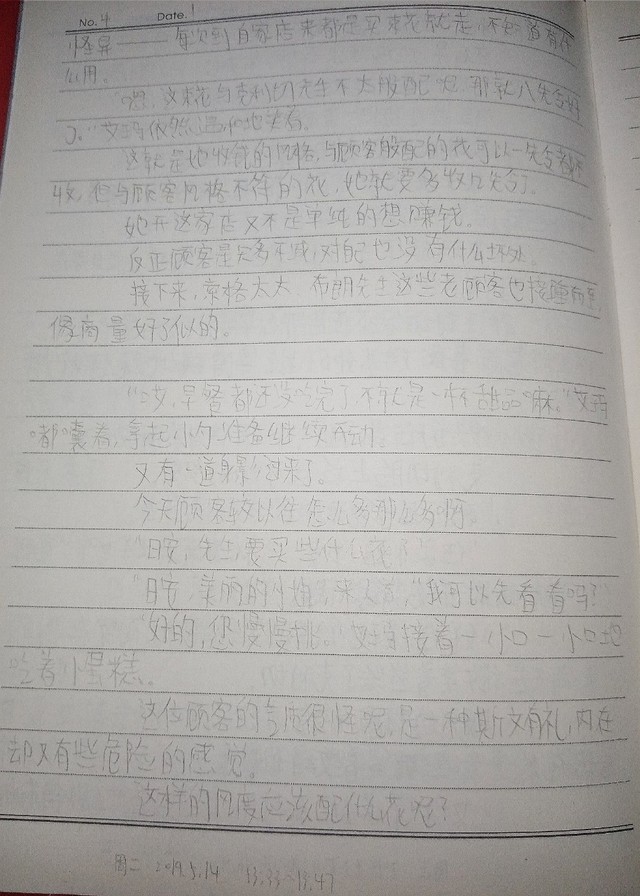 No. 4 Date. 1
怪异——每次到自家店来都是买束花就走,不知道有什
么用。
"嗯,这束花与克利切先生不太般配呢,那就八先令好
了。"艾玛依然温和地笑着。
这就是她收钱的风格,与顾客般配的花可以一先令都不
收,但与顾客风格不符的花,她就要多收几先令了。
她开这家店又不是单纯的想赚钱。
反正顾客是欠多不减,对自己也没有什么坏处。
接下来,京格太太 布朗先生这些老顾客也接踵而至
像商量好了似的。
"哎,早餐都还没吃完了,不就是一杯甜品嘛。"艾玛
嘟囔着,拿起小勺准备继续开动。
又有一道身影过来了。
今天顾客较以往怎么多那么多啊。
"日安,先生,要买些什么花?"
"日安,美丽的小姐",来人言,"我可以先看看吗?"
"好的,您慢慢挑。"艾玛接着一小口一小口地
吃着小蛋糕。
这位顾客的气质很怪呢,是一种斯文有礼,内在
却又有些危险的感觉。
这样的风度应该配什么花呢?
周二 2019.5.14 13:33~13:47